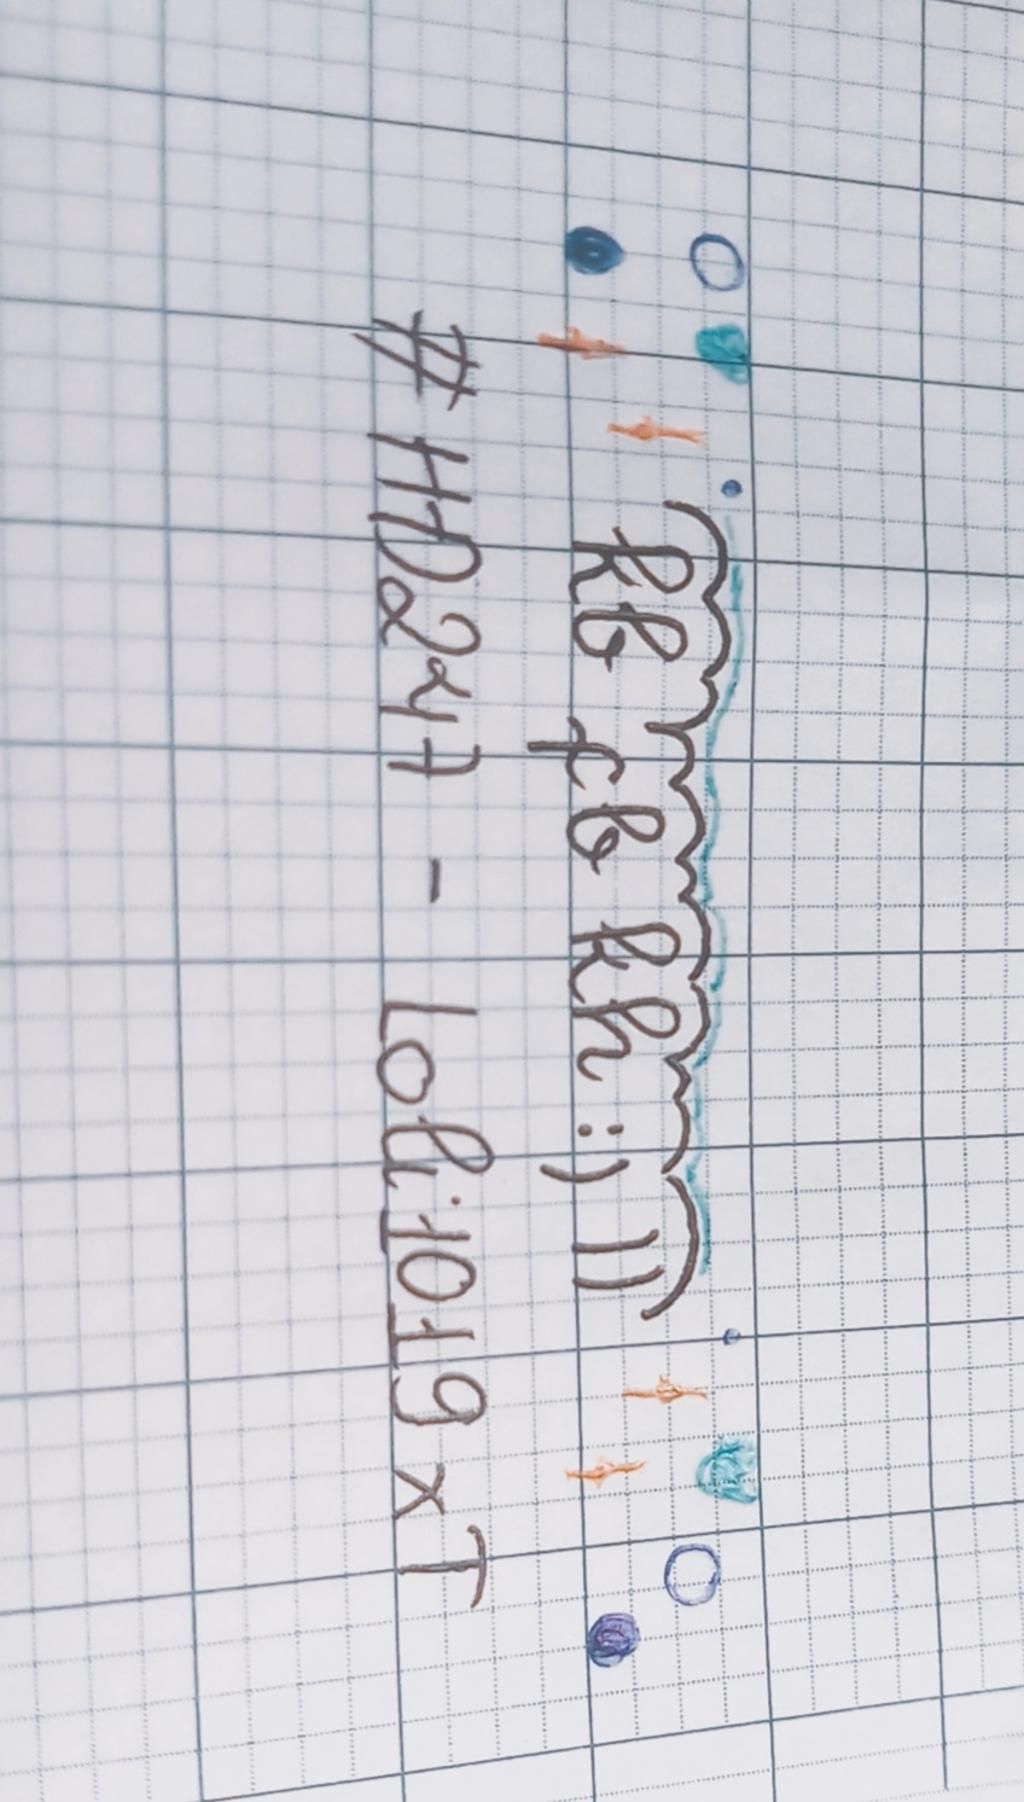 kb fb kh :) ))
#HD247 - Loli1019 x T